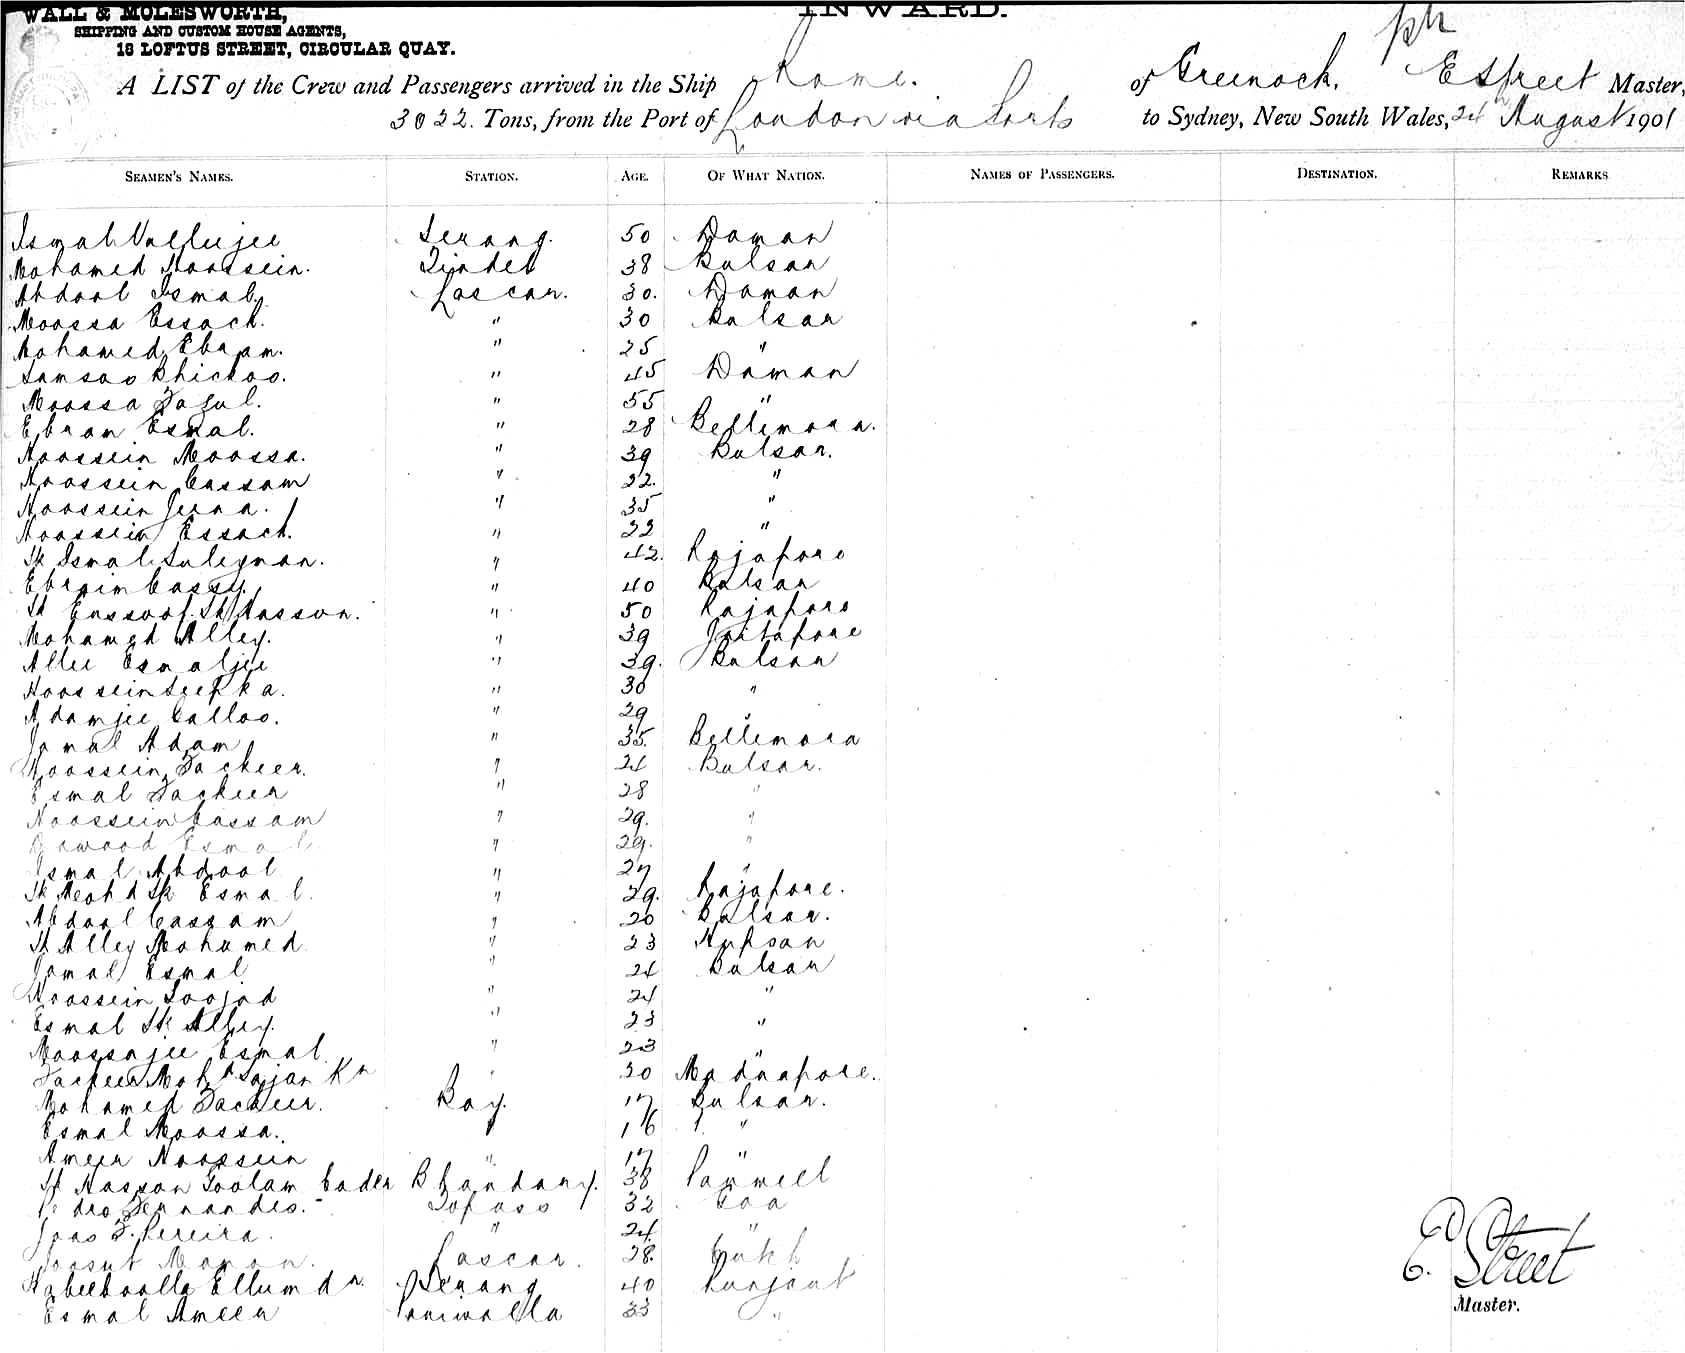 WALL & MOLESWORTH,
SHIPPING AND CUSTOM HOUSE AGENTS,
18 LOFTUS STREET, CIRCULAR QUAY.
INWARD.
A LIST of the Crew and Passengers arrived in the Ship Rome. of Greenock, E Street Master,
3022. Tons, from the Port of London via Ports to Sydney, New South Wales, 24th August 1901
SEAMEN'S NAMES. STATION. AGE. OF WHAT NATION. NAMES OF PASSENGERS. DESTINATION. REMARKS
Ismal Vallujee Serang. 50 Daman
Mohamed Hoossein. Tindel 38 Bulsar
Abdool Ismal. Lascar. 30. Daman
Moossa Essack. " 30 Bulsar
Mohamed Ebram. " 25 "
Samsoo Bhickoo. " 45 Daman
Moossa " 55 "
Ebram Esmal. " 28 Bellimora.
Hoossein Moossa. " 39 Bulsar.
Hoossein Cassam " 22. "
Hoossein Jeena. " 35 "
Hoossein Essack. " 22 "
Sk Ismal Suleyman. " 42. Rajapore
Ebraim Cassy. " 40 Bulsar
Sk Enssoof Sk Hasson. " 50 Rajapore
Mohamed Alley. " 39 Jaitapore
Allee Esmaljee " 39. Bulsar
Hoossein " 30 "
Adamjee Calloo. " 29 "
Jamal Adam " 35. Bellimora
Hoossein Fackeer. " 24 Bulsar.
Esmal Fackeer " 28 "
Hoossein Cassam " 29. "
Dawood Esmal " 29. "
Ismal Abdool " 27 "
Sk Mohd Sk Esmal. " 29. Rajapore.
Abdool Cassam " 20 Bulsar.
Sk Alley Mohamed " 23
Jamal Esmal " 24 Bulsar
Hoossein " 24 "
Esmal Sk Alley. " 23 "
Moossajee Esmal. " 23 "
Fackeer Mohd Kn " 20
Mohamed Fackeer. Boy. 17 Bulsar.
Esmal Moossa. " 16 "
Ameer Hoossein " 17 "
Sk Hasson Goolam Cader Bhandary. 38 Panwell
Pedro Fernandes. Topass 32 Goa
Joao F. Pereira. " 24 "
Moman. Lascar. 28.
Habeeboolla Ellumdn Serang 40
Esmal Ameer Paniwalla 33 "
E. Street
Master.